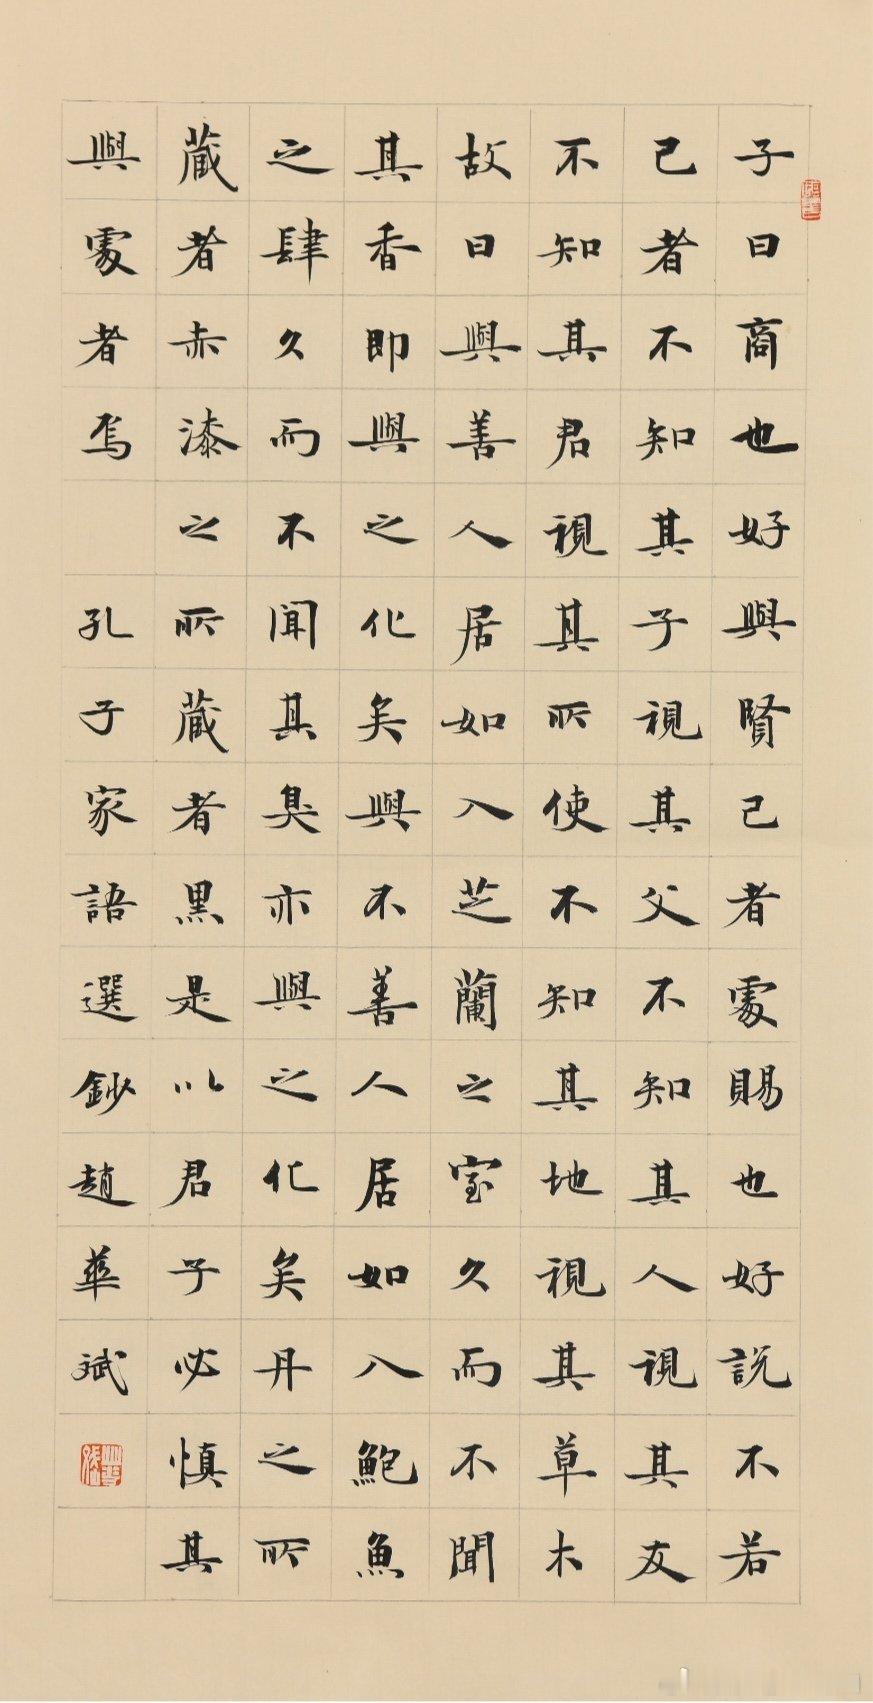 子曰商也好與賢己者處賜也好説不若
己者不知其子視其父不知其人視其友
不知其君視其所使不知其地視其草木
故曰與善人居如入芝蘭之室久而不聞
其香即與之化矣與不善人居如入鮑魚
之肆久而不聞其臭亦與之化矣丹之所
藏者赤漆之所藏者黑是以君子必慎其
與處者焉 孔子家語選鈔趙華斌